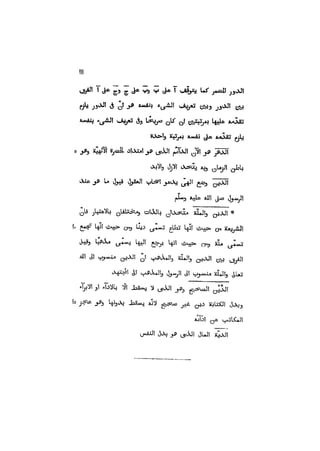 الدور المضمر كما يتوقف آ على ب وب على ج وج على آ الفرق
بين الدور وبين تعريف الشىء بنفسه هو انّ فى الدور يلزم
تقدّمه عليها بمرتبتين ان كان صريحًا وفى تعريف الشىء بنفسه
يلزم تقدّمه على نفسه بمرتبة واحدة
الدهر هو الآن الدائم الذى هو امتداد للحضرة الالٰهيّة وهو ٥
باطن الزمان وبه يتّحد الازل والابد
الدين وضع الٰهى يدعو اصحاب العقول قبول ما هو عند
الرسول صلى الله عليه وسلّم
* الدين والملّة متّحدان بالذات ومختلفان بالاعتبار فانّ
الشريعة من حيث انّها تطاع تسمّى دينًا ومن حيث انّها تجمع ١٠
تسمّى ملّة ومن حيث انّها يرجع اليها يسمّى مذهبًا وقيل
الفرق بين الدين والملّة والمذهب انّ الدين منسوب الى الله
تعالى والملّة منسوب الى الرسول والمذهب الى المجتهد
الدّين الصحيح وهو الذى لا يسقط الّا بالادآء او الابرآء
وبدل الكتابة دين غير صحيح لانّه يسقط بدونها وهو عاجز ١٥
المكاتب عن ادائه
الديّة المال الذى هو بدل النفس